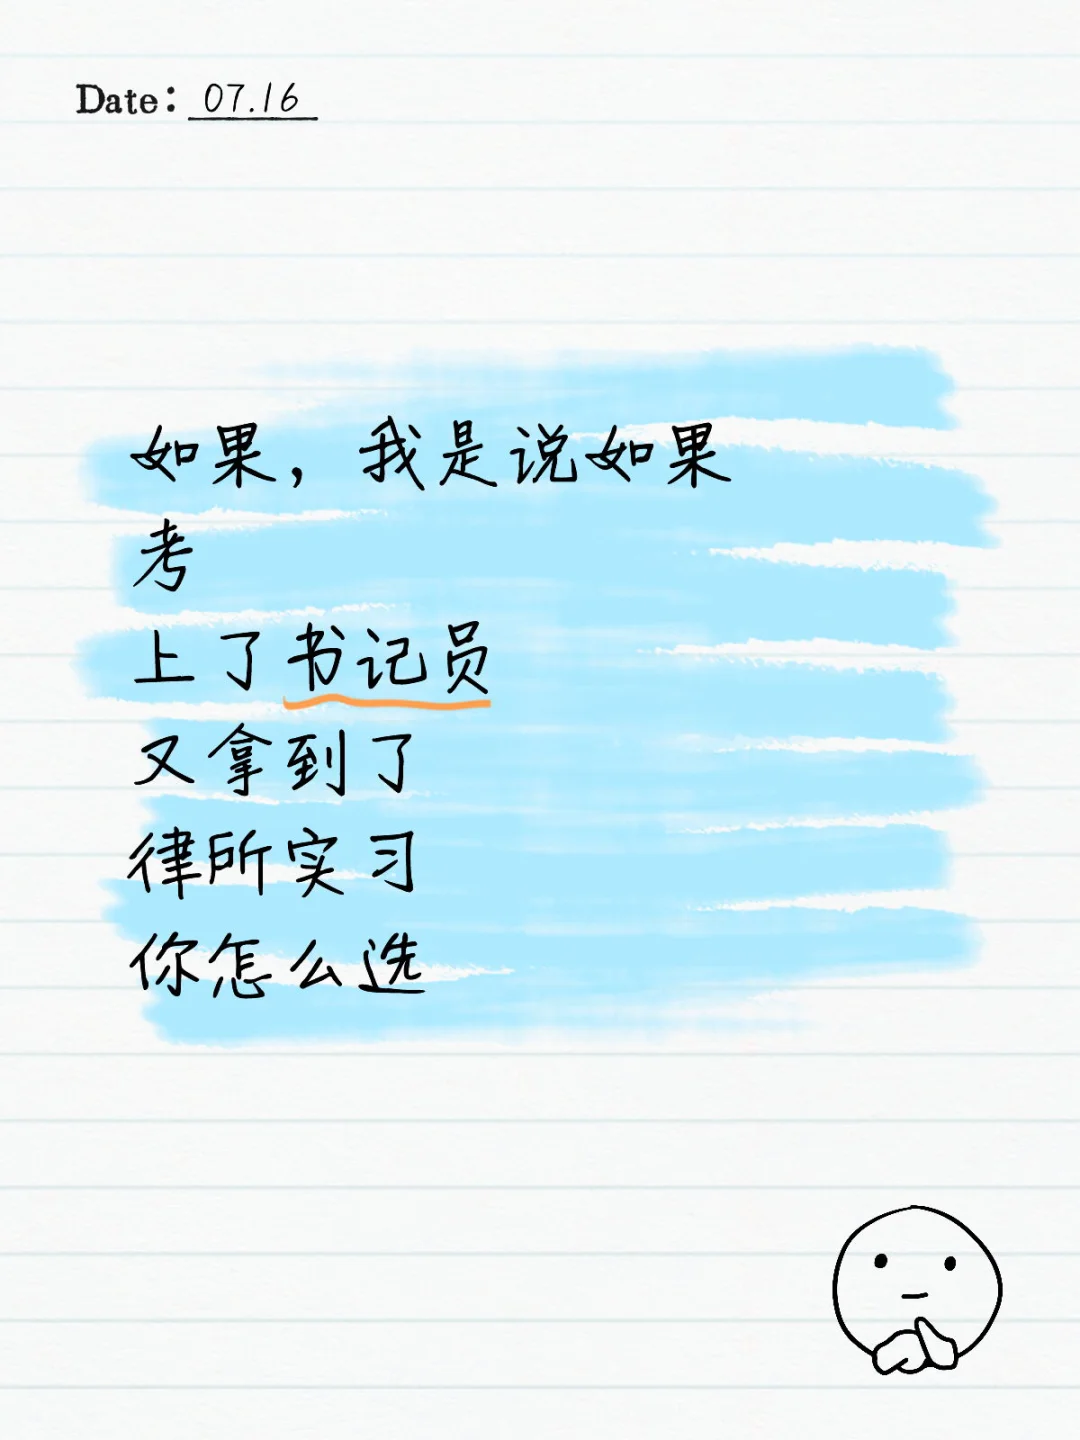 Date: 07.16
如果，我是说如果
考
上了书记员
又拿到了
律所实习
你怎么选